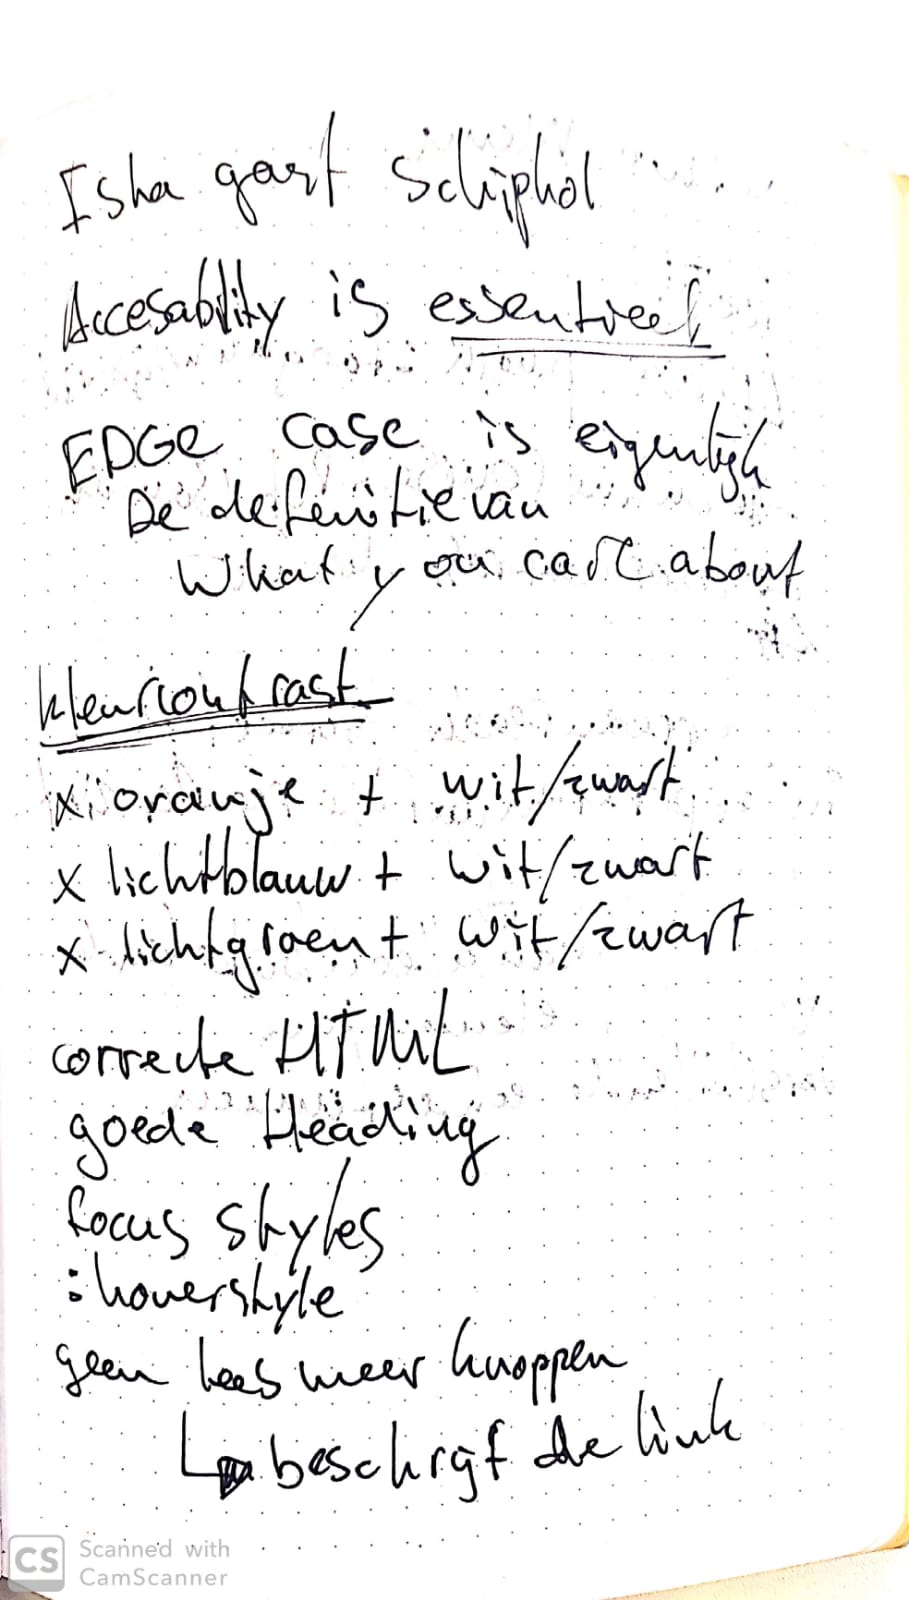 Isha gast Schiphol
Accesability is essentieel
EDGE case is eigenlijk
De defenitie van
What you care about
kleurcontrast
x oranje + wit/zwart
x lichtblauw + wit/zwart
x lichtgroen + wit/zwart
correcte HTML
goede Heading
focus styles
:hoverstyle
geen lees meer knoppen
beschrijf de link
CS Scanned with
CamScanner